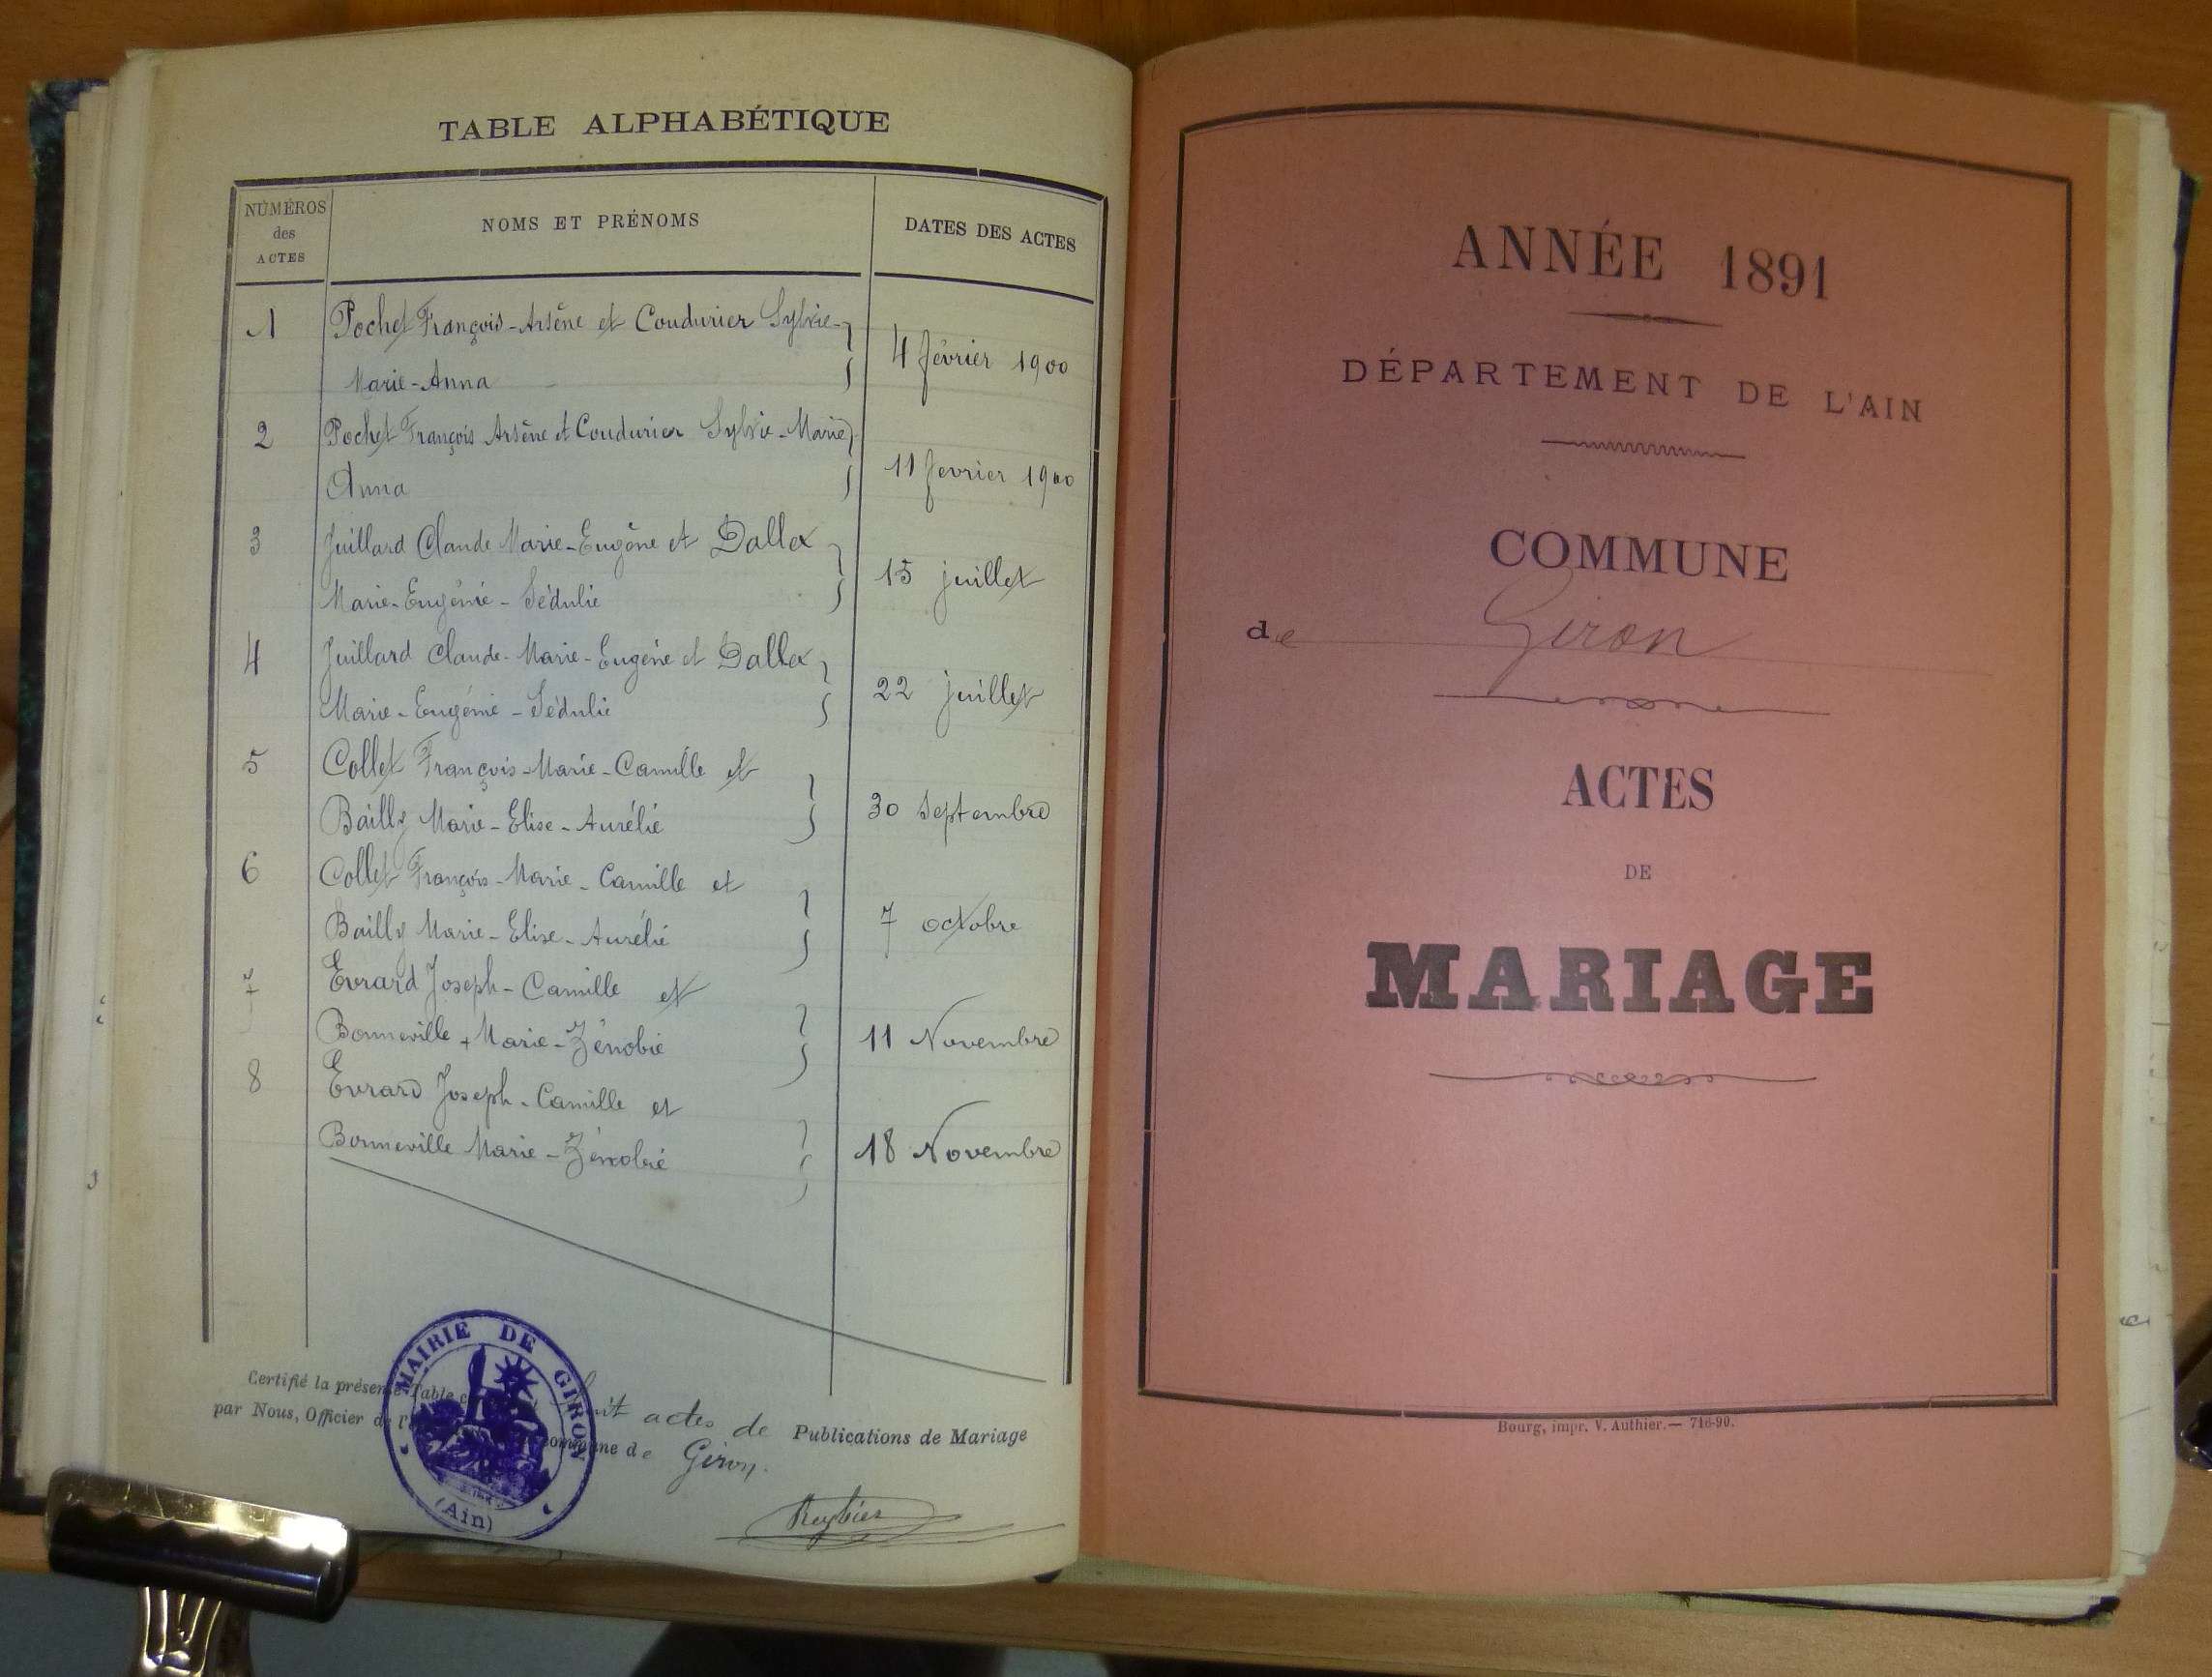 TABLE ALPHABÉTIQUE
NUMÉROS
des
ACTES
NOMS ET PRÉNOMS
DATES DES ACTES
1 Pochet François-Arsène et Coudurier Sylvie-
Marie-Anna
4 février 1900
2 Pochet François Arsène et Coudurier Sylvie-Marie
Anna
11 fevrier 1900
3 Juillard Claude Marie-Eugène et Dallex
Marie-Eugénie-Sédulie
15 juillet
4 Juillard Claude-Marie-Eugène et Dallex
Marie-Eugénie-Sédulie
22 juillet
5 Collet François-Marie-Camille et
Bailly Marie-Elise-Aurélie
30 Septembre
6 Collet François-Marie-Camille et
Bailly Marie-Elise-Aurélie
7 octobre
7 Evrard Joseph-Camille et
Bonneville Marie-Zénobie
11 Novembre
8 Evrard Joseph-Camille et
Bonneville Marie-Zénobie
18 Novembre
Certifié la présente Table huit actes de Publications de Mariage
par Nous, Officier de l' commune de Giron.
MAIRIE DE GIRON
(Ain)
ANNÉE 1891
DÉPARTEMENT DE L'AIN
COMMUNE
de Giron
ACTES
DE
MARIAGE
Bourg, impr. V. Authier. — 716-90.